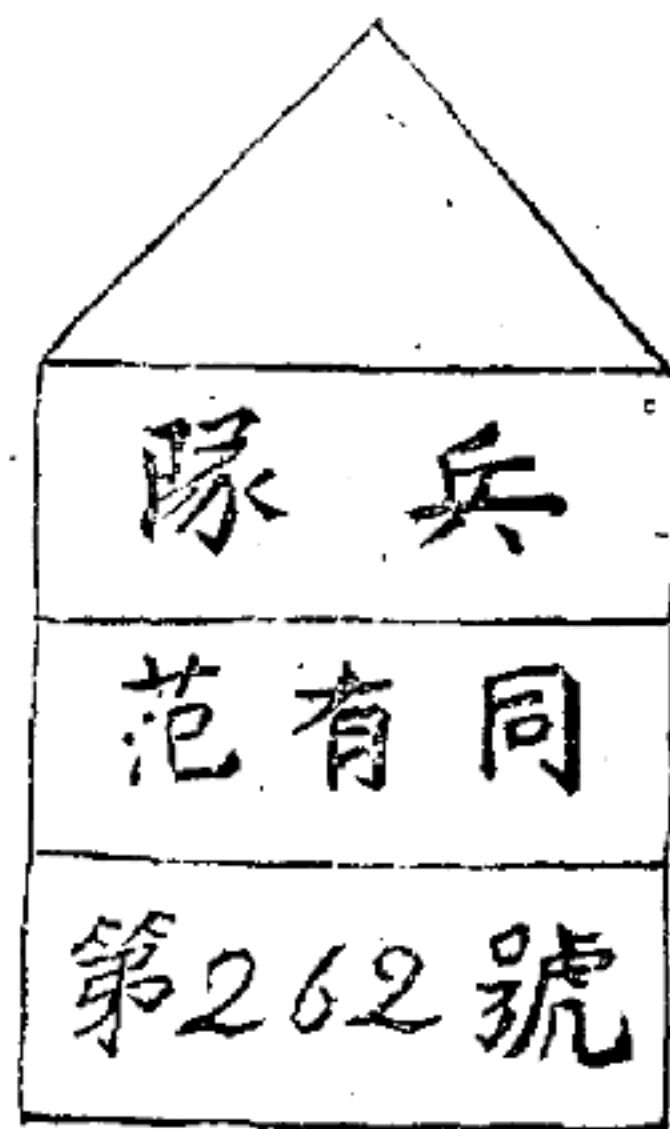 隊兵
范有同
第262號